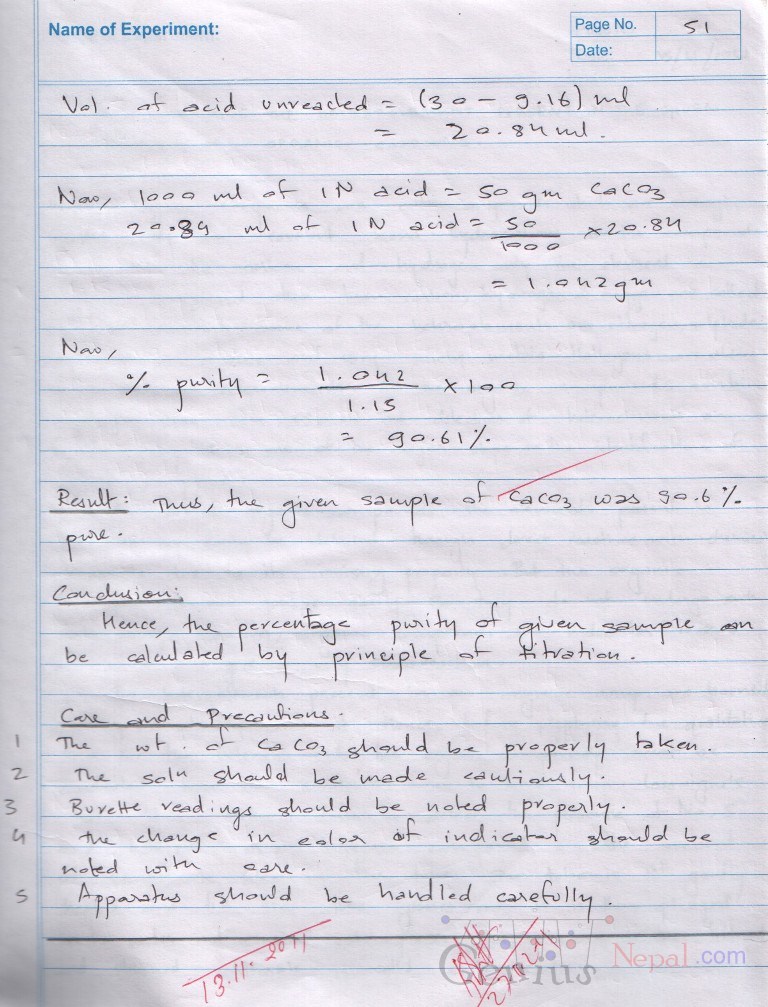 Name of Experiment:
Page No. 51
Date:
Vol. of acid unreacted = (30 - 9.16) ml
= 20.84 ml.
Now, 1000 ml of 1N acid = 50 gm CaCO3
20.84 ml of 1N acid = 50/1000 × 20.84
= 1.042 gm
Now,
% purity = 1.042/1.15 × 100
= 90.61%
Result: Thus, the given sample of CaCO3 was 90.6%
pure.
Conclusion:
Hence, the percentage purity of given sample can
be calculated by principle of titration.
Care and Precautions.
1 The wt. of CaCO3 should be properly taken.
2 The soln should be made cautiously.
3 Burette readings should be noted properly.
4 The change in color of indicator should be
noted with care.
5 Apparatus should be handled carefully.
13.11.2011
Genius Nepal.com